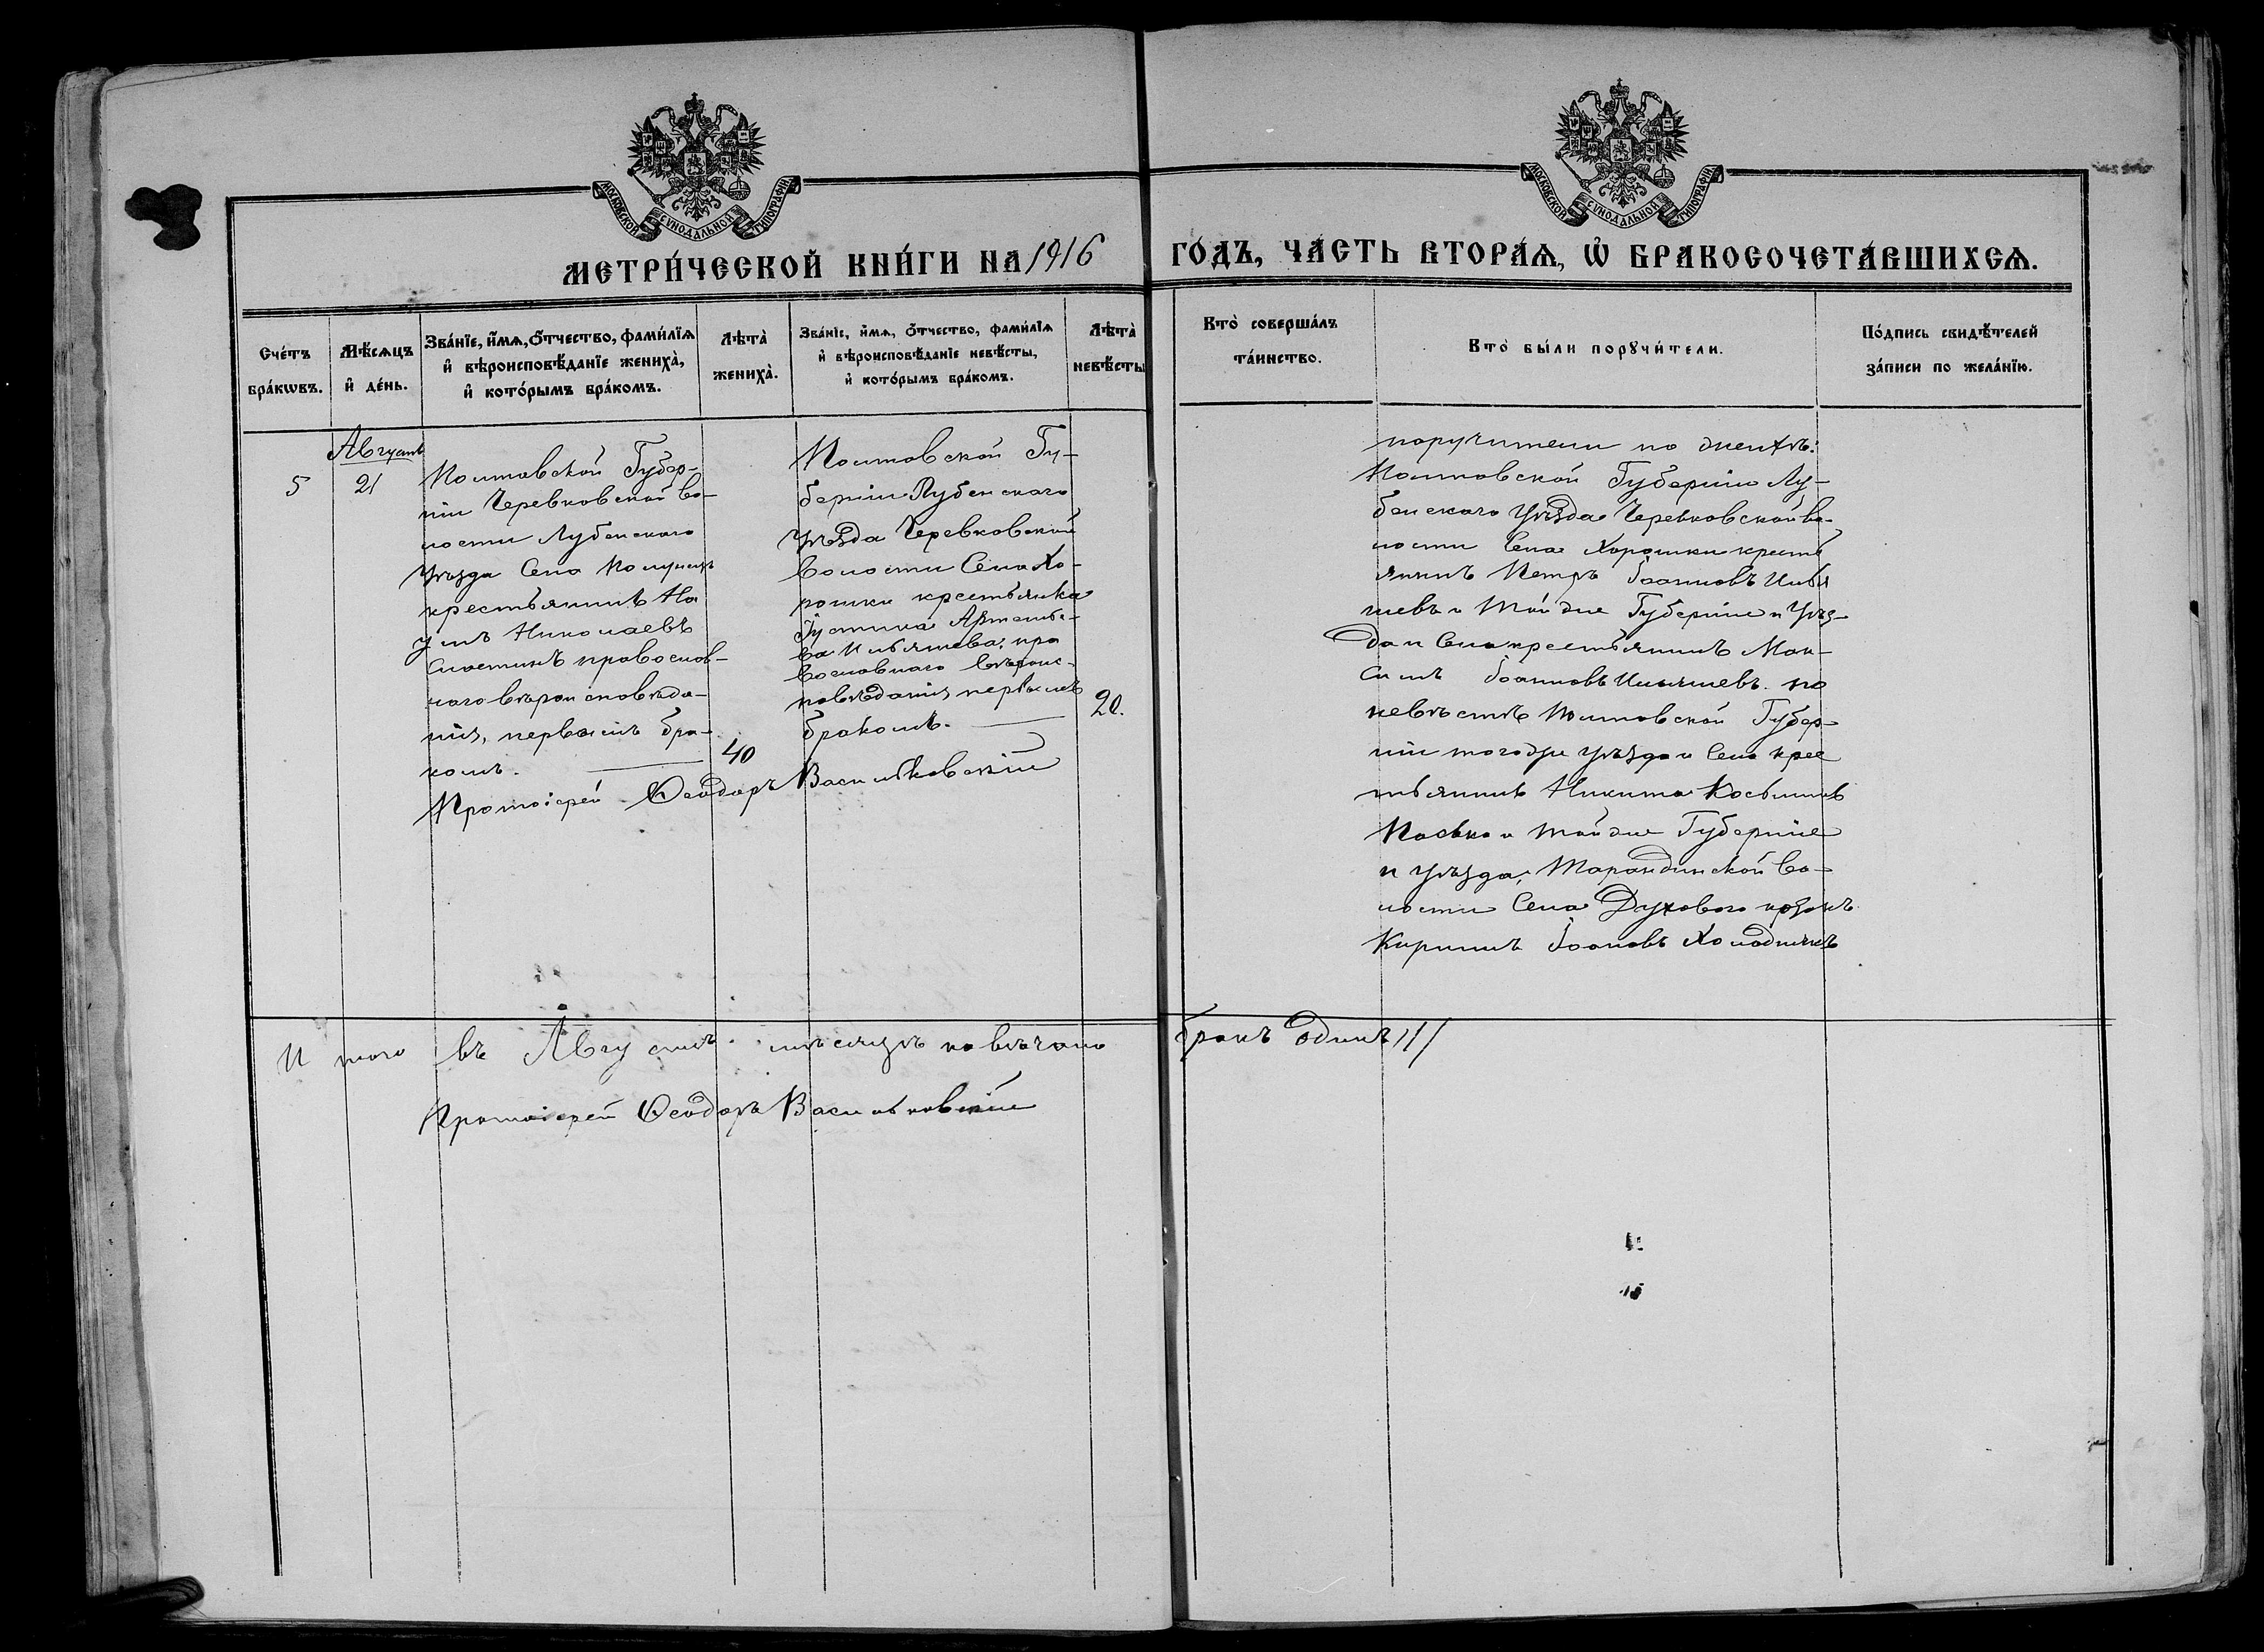 МОСКОВСКОЙ СѴНОДАЛЬНОЙ ТИПОГРАФІИ
МОСКОВСКОЙ СѴНОДАЛЬНОЙ ТИПОГРАФІИ
МЕТРИ́ЧЕСКОЙ КНИ́ГИ НА 1916 ГО́ДЪ, ЧА́СТЬ ВТОРА́Ѧ, Ѡ҆ БРАКОСОЧЕТА́ВШИХСѦ.
Сче́тъ бра́кѡвъ.
Мѣ́сѧцъ и҆ де́нь.
Зва́нїе, и҆́мѧ, о҆́тчество, фами́лїѧ и҆ вѣроисповѣ́данїе жениха̀, и҆ кото́рымъ бра́комъ.
Лѣта̀ жениха̀.
Зва́нїе, и҆́мѧ, о҆́тчество, фами́лїѧ и҆ вѣроисповѣ́данїе невѣ́сты, и҆ кото́рымъ бра́комъ.
Лѣта̀ невѣ́сты
Кто̀ соверша́лъ та́инство.
Кто̀ бы́ли порꙋчи́тели.
По́дпись свидѣ́телей за́писи по жела́нїю.
Августъ
5
21
Полтавской Губер-
ніи Черевковской во-
лости Лубенскаго
Уѣзда Села
крестьянинъ На
умъ Николаевъ
Сластинъ православ-
наго вѣроисповѣда-
нія, первымъ бра-
комъ.
40
Полтовской Гу-
берніи Лубенскаго
Уѣзда Черевковской
волости Села Хо-
рошки крестьянка
Іустина Артемье-
ва Ильяшева, пра
вославнаго вѣроис-
повѣданія, первымъ
бракомъ.
20.
Протоіерей Ѳеодоръ Васильковскій
поручители по женихѣ:
Полтовской Губерніи Лу-
бенскаго Уѣзда Черевковской во-
лости Села Хорошки кресть
янинъ Петръ Іоанновъ Илья
шевъ и той же Губерніи и Уѣз-
да и Села крестьянинъ Мак-
симъ Іоанновъ Ильяшевъ. по
невѣстѣ Полтовской Губер-
ніи того же уѣзда и Села крес
тьянинъ Никита Косьминъ
и той же Губерніи
и уѣзда, Тарандинской во-
лости Села Духового козакъ
Кирилъ Іоановъ Холодникъ
И того въ Августѣ мѣсяцѣ повѣчано бракъ одинъ 111
Протоіерей Ѳеодоръ Васильковскій